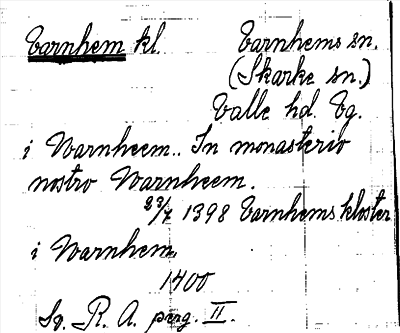 Varnhem kl. Varnhems sn.
(Skarke sn.)
Valle hd. Vg.
i Warnheem.. In monasterio
nostro Warnheem.
23/7 1398 Varnhems kloster
i Warnhem.
1400
Sv. R. A. perg. II.